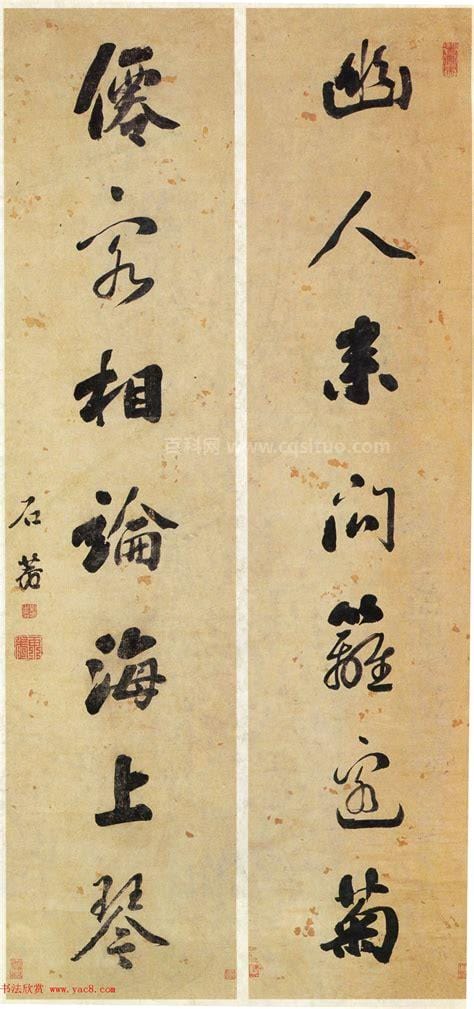 幽人來問籬邊菊
僊客相論海上琴
石菴
百科网 www.cqsituo.com
书法欣赏 www.yac8.com